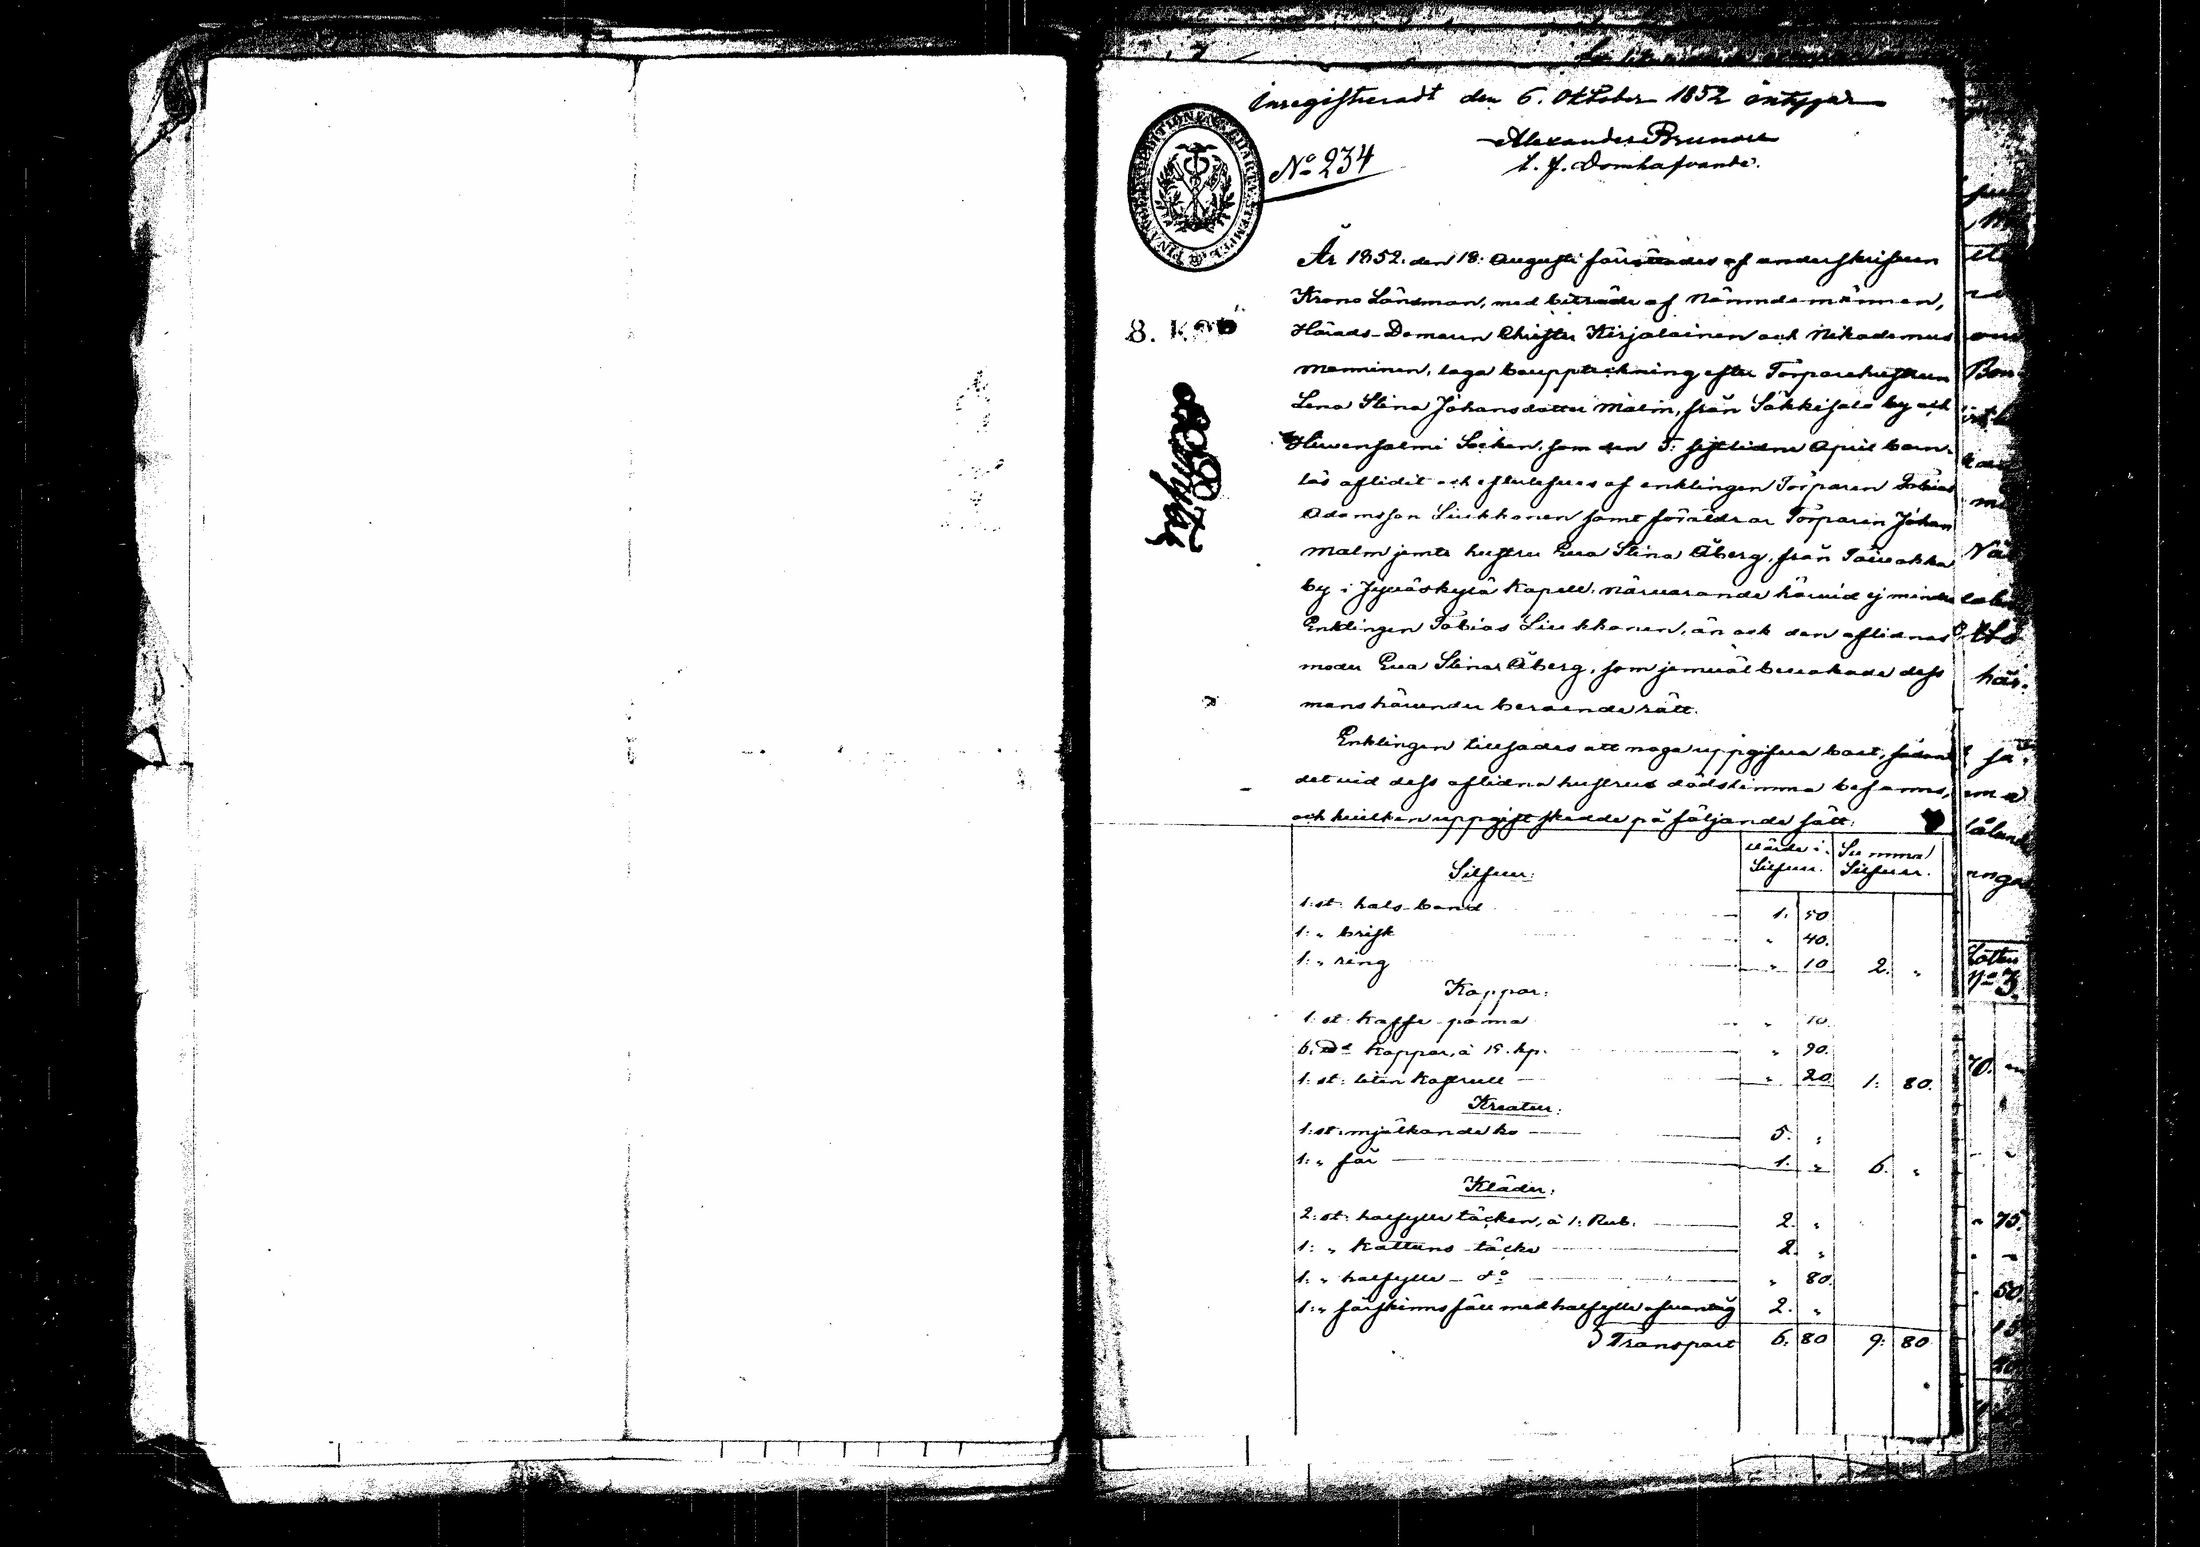 Inregistreradt den 6. Oktober 1852 intygar
Alexander Brunou
t. f. Domhafvande.
No 234
FINANCE EXPEDITIONENS CHARTÆ STEMPEL
8. KOP
År 1852. den 18. Augusti förrättades af underskrifven
Krono Länsman, med biträde af Nämndemännen,
Härads-Domaren Christer Kirjalainen och Nikodemus
Manninen, laga bouppteckning efter Torparehustrun
Lena Stina Johansdotter Malm, från Säkkisalo by och
Hirvensalmi Socken, som den 5. sistlidne April barn-
lös aflidit och efterlefves af enklingen Torparen Tobias
Adamsson Liukkonen samt föräldrar Torparen Johan
Malm jemte hustru Eva Stina Åberg, från
by i Jyväskylä Kapell. Närvarande härvid ej mindre
Enklingen Tobias Liukkonen, än ock den aflidnas
moder Eva Stina Åberg, som jemväl bevakade dess
mans härunder beroende rätt.
Enklingen tillsades att noga uppgifva boet, sådant
det vid dess aflidna hustrus dödstimma befanns,
och hvilken uppgift skedde på följande sätt:
Värde i Silfver. Summa Silfver.
Silfver:
1. st. halsband 1. 50
1. " brisk " 40.
1. " ring " 10 2. "
Koppar:
1. st. Kaffe panna " 70.
6. Koppar, à 15. kp. " 90.
1. st. liten Kastrull " 20 1. 80.
Kreatur:
1. st. mjölkande ko 5. "
1. " får 1. " 6. "
Kläder:
2. st. halfylle täcken, à 1. Rub. 2. "
1. " Kattuns täcke 2. "
1. " halfylle do " 80.
1. " fårskinns fäll med halfylle öfvantyg 2. "
Transport 6. 80 9. 80